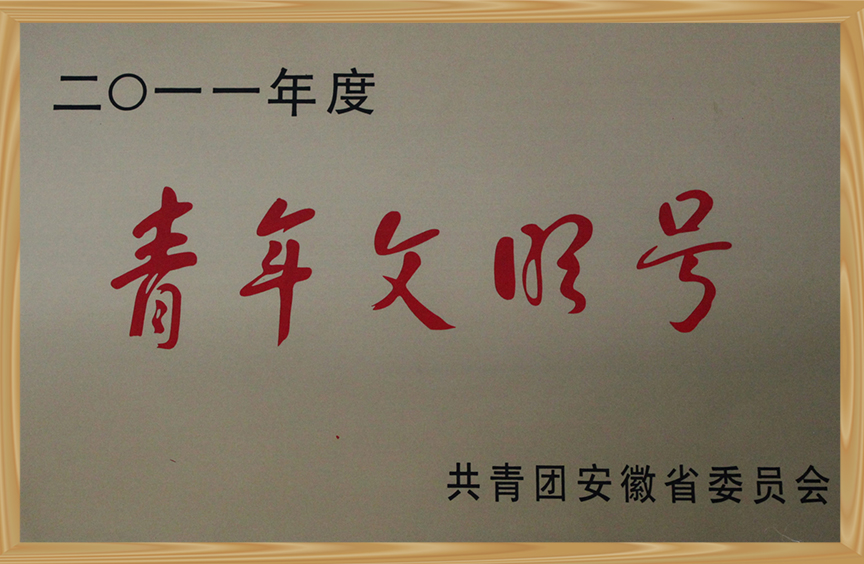 二〇一一年度
青年文明号
共青团安徽省委员会